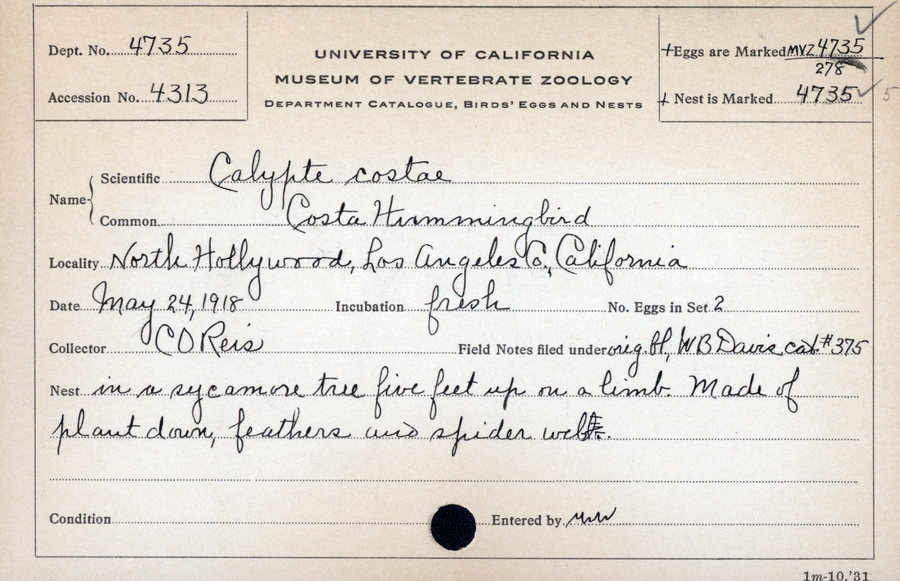 Dept. No. 4735
Accession No. 4313
UNIVERSITY OF CALIFORNIA
MUSEUM OF VERTEBRATE ZOOLOGY
DEPARTMENT CATALOGUE, BIRDS' EGGS AND NESTS
+Eggs are Marked MVZ 4735
278
+ Nest is Marked 4735 5
Name
Scientific Calypte costae
Common Costa Hummingbird
Locality North Hollywood, Los Angeles Co., California
Date May 24, 1918 Incubation fresh No. Eggs in Set 2
Collector C O Reis Field Notes filed under orig. , W B Davis cat #375
Nest in a sycamore tree five feet up on a limb. Made of
plant down, feathers and spider web.
Condition Entered by
1m-10,'31